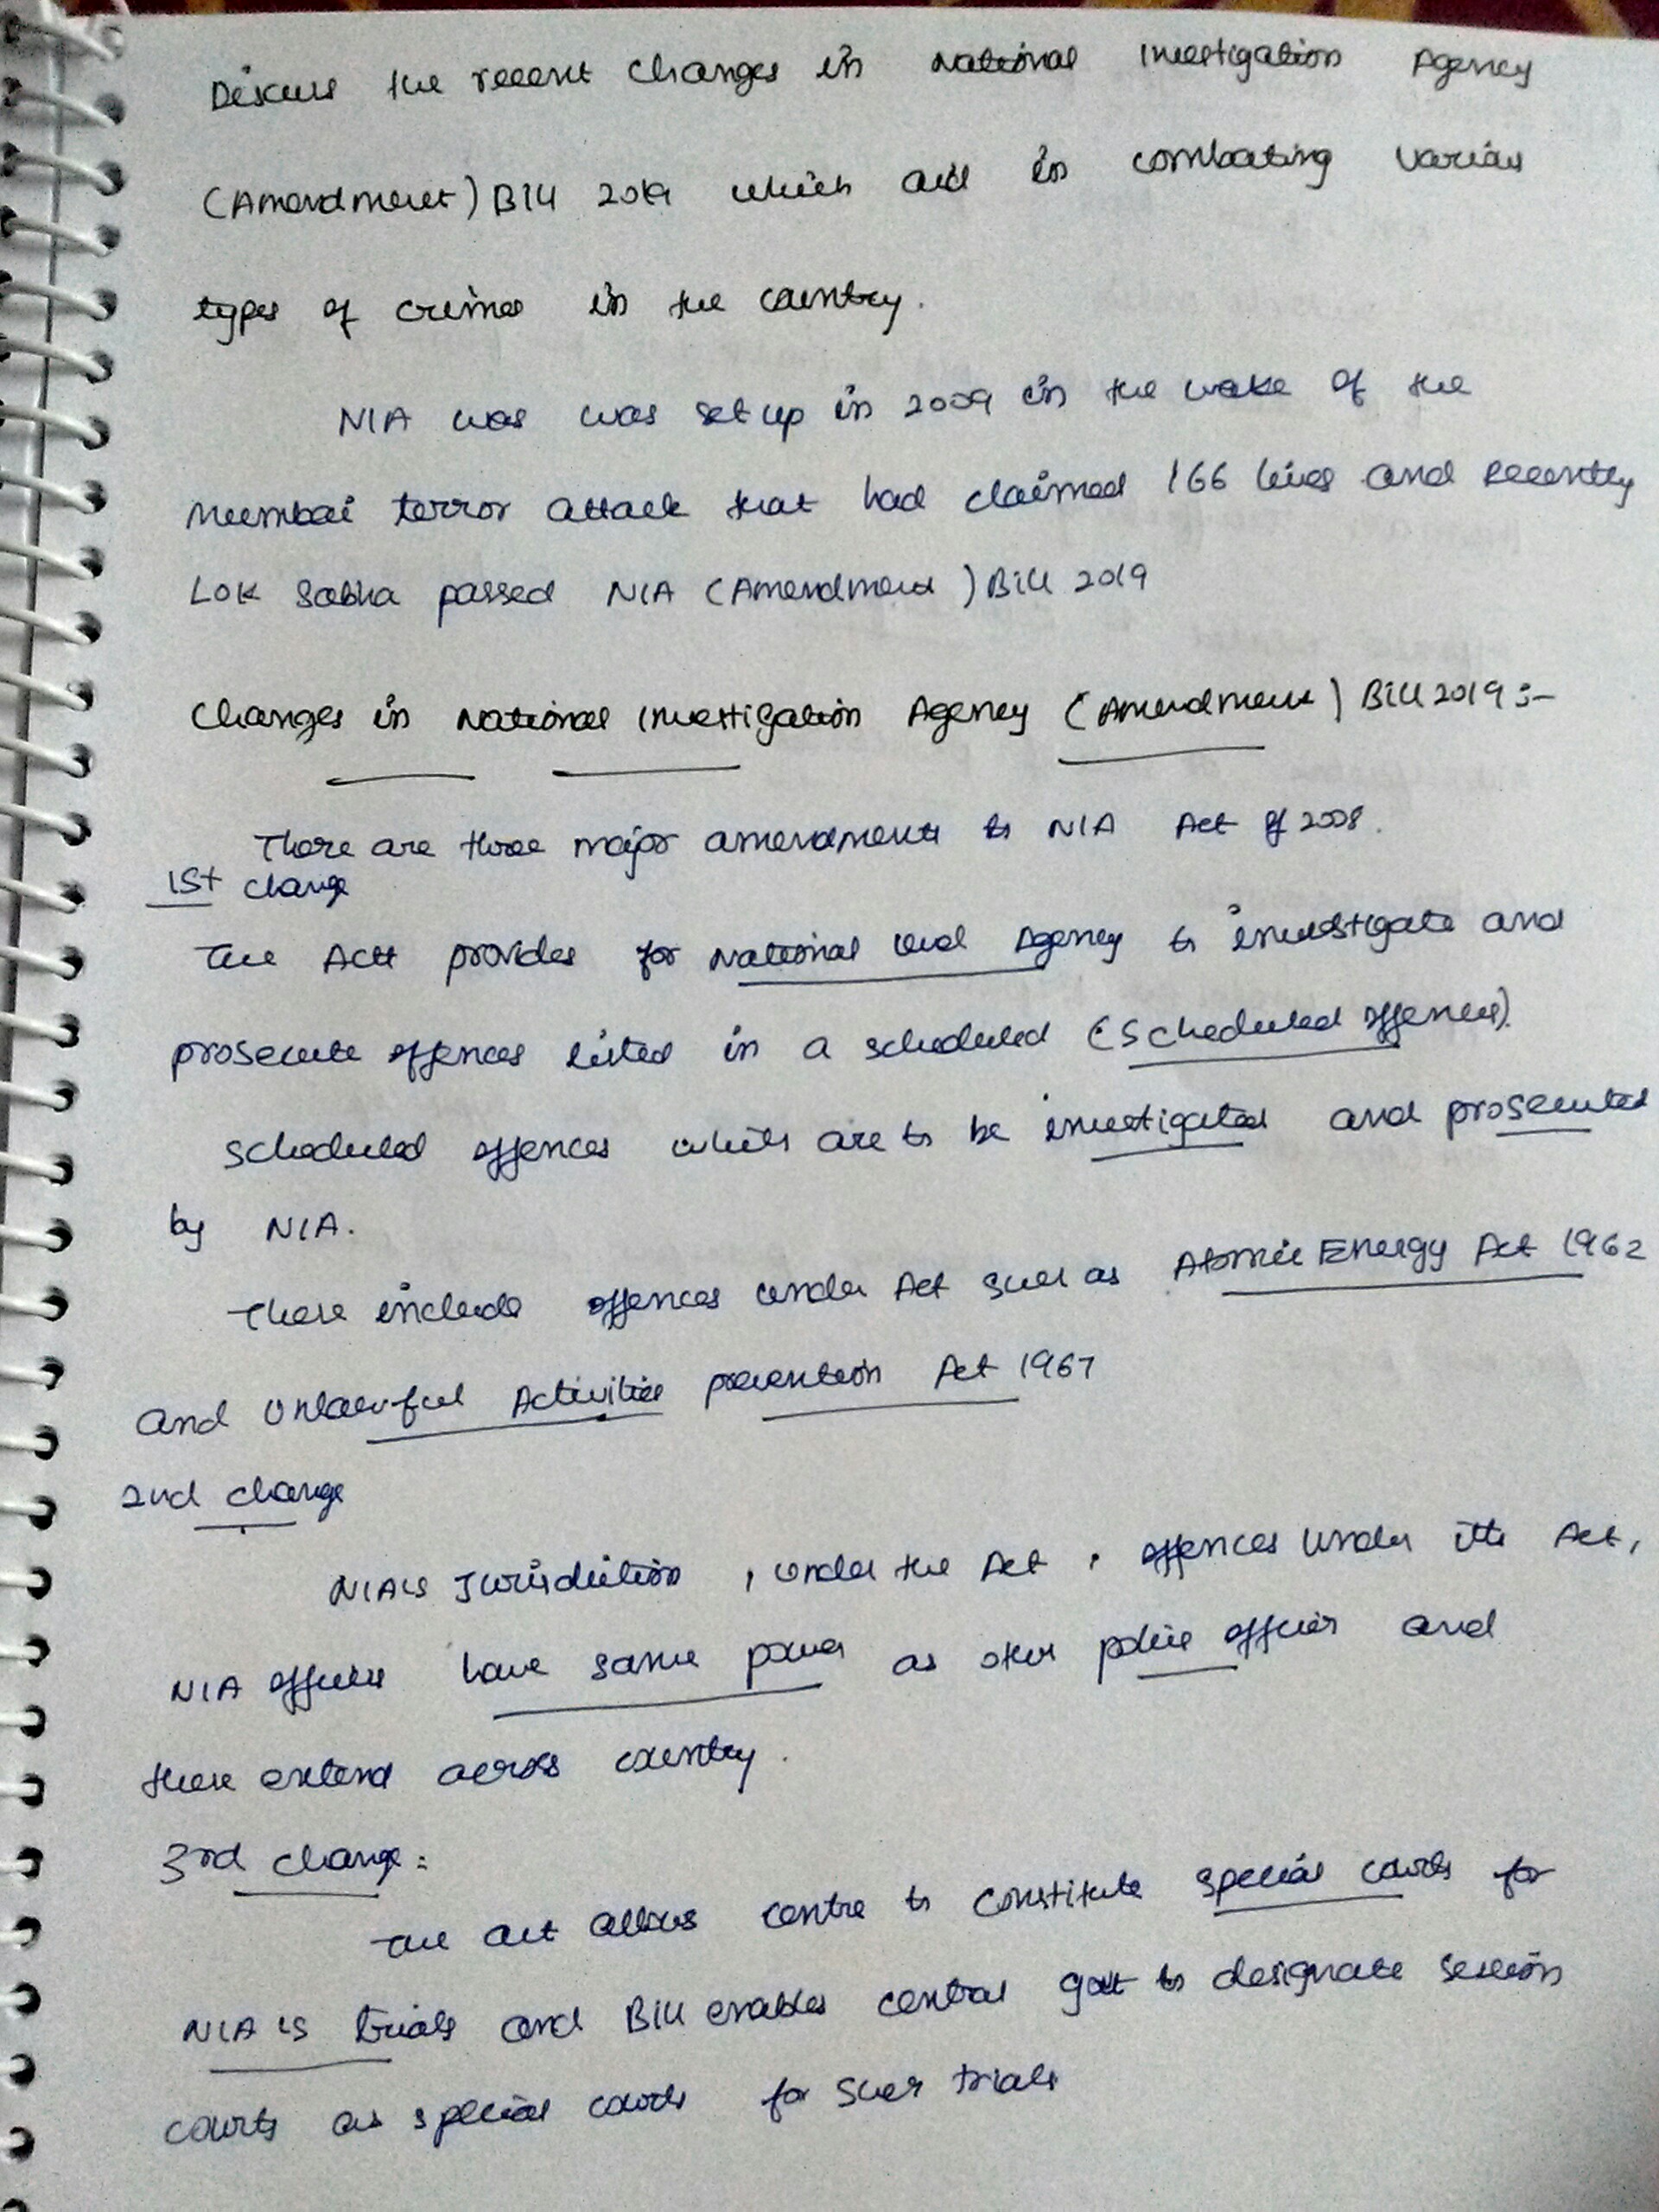 Discuss the recent changes in National Investigation Agency
(Amendment) Bill 2019 which aid in combating various
types of crimes in the country.
NIA was was set up in 2009 in the wake of the
Mumbai terror attack that had claimed 166 lives and recently
Lok Sabha passed NIA (Amendment) Bill 2019
Changes in National Investigation Agency (Amendment) Bill 2019 :-
There are three major amendments to NIA Act of 2008.
1st change
The Actt provides for National level Agency to investigate and
prosecute offences listed in a scheduled (Scheduled offences).
Scheduled offences which are to be investigated and prosecuted
by NIA.
These include offences under Act such as Atomic Energy Act 1962
and Unlawful Activities prevention Act 1967
2nd change
NIA's Jurisdiction, under the Act, offences under the Act,
NIA officers have same power as other police officers and
these extend across country.
3rd change :
The act allows centre to constitute special courts for
NIA's trials and Bill enables central govt to designate session
courts as special courts for such trials